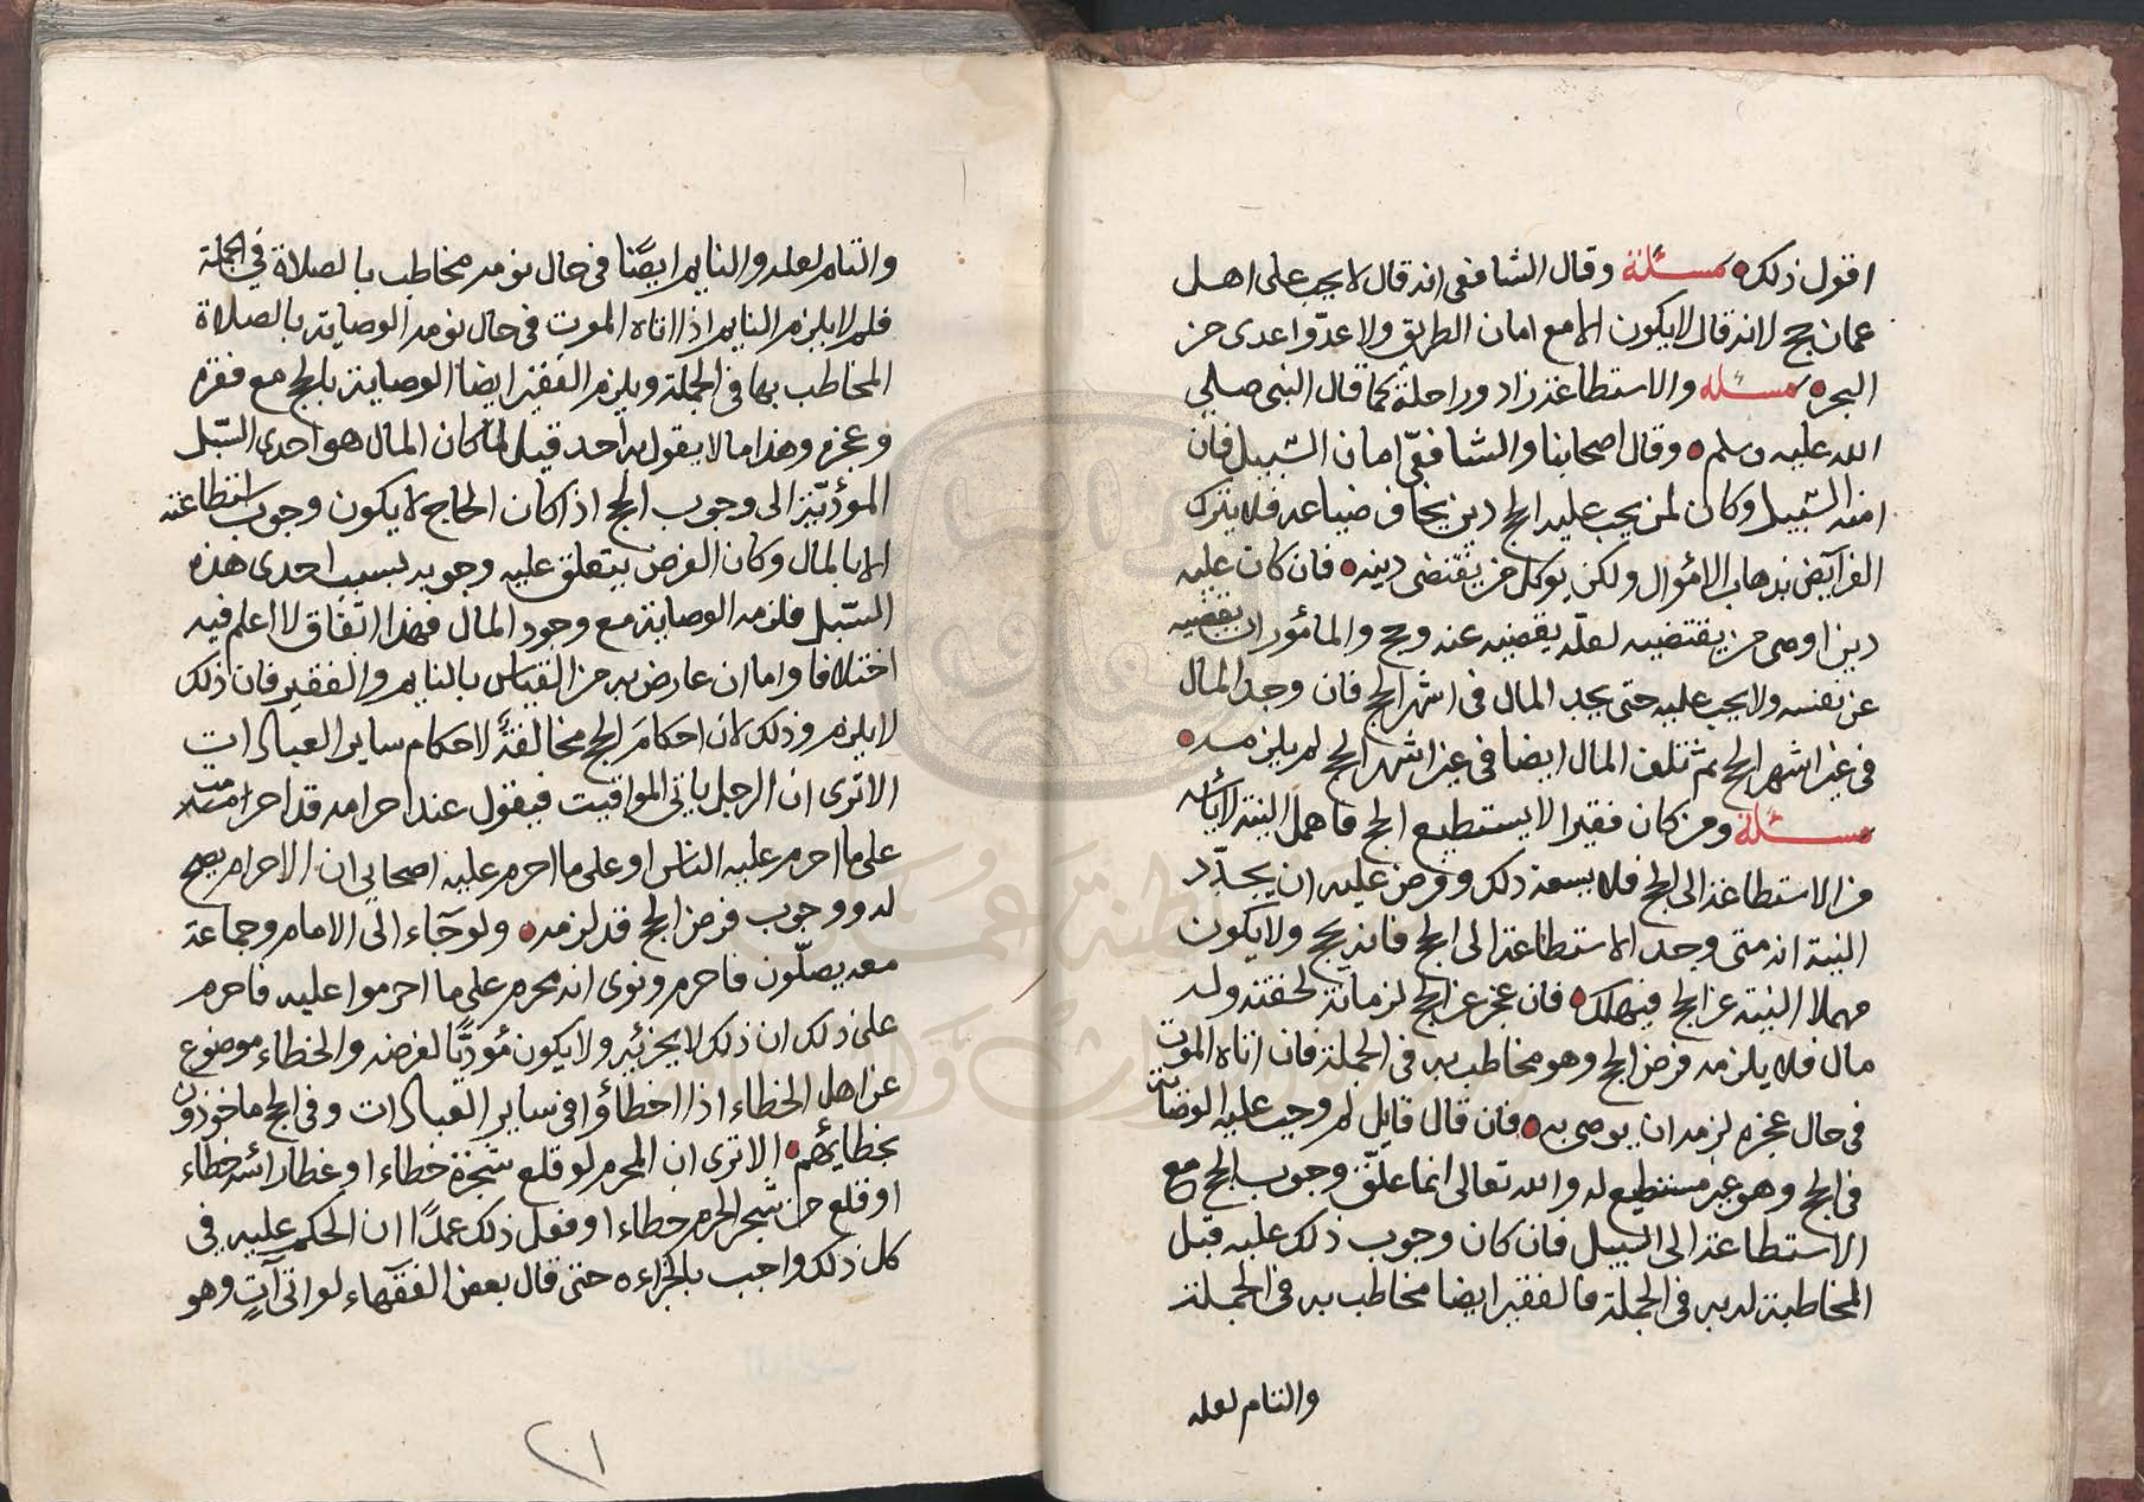 اقول ذلك ه مسئلة وقال الشافعى انه قال لا يجب على اهل
عمان حج لانه قال لا يكون الا مع امان الطريق ولا عدّوا عدى من
البحر ه مسئله والاستطاعة زاد وراحلة كما قال النبى صلى
الله عليه وسلم ه وقال اصحابنا والشافعىّ امان السبيل فان
امنه السبيل وكان لمن يجب عليه الحج دين يخاف ضياعه فلا يترك
الفرآيض بذهاب الامؤال ولكن يوكل من يقتضى دينه ه فان كان عليه
دين اوصى من يقتضيه لعلّه يقضيه عنه وحج والمأمور ان يقضيه
عن نفسه ولا يجب عليه حتى يجد المال فى اشهر الحج فان وجد المال
فى غير اشهر الحج ثم تلف المال ايضا فى غير اشهر الحج لم يلزمه ه
مسئلة ومن كان فقيرا لا يستطيع الحج فاهمل النية لايأسه
من الاستطاعة الى الحج فلا يسعه ذلك وفرض عليه ان يجدّد
النية انه متى وجد الاستطاعة الى الحج فانه يحج ولا يكون
مهملا النية عن الحج فيهلك ه فان عجز عن الحج لزمانة لحقته وله
مال فلا يلزمه فرض الحج وهو مخاطب به فى الجملة فان اتاه الموت
فى حال عجزه لزمه ان يوصى به ه فان قال قايل لم وجب عليه الوصاية
فى الحج وهو غير مستطيع له والله تعالى انما علّق وجوب الحج مع
الاستطاعة الى السبيل فان كان وجوب ذلك عليه قبل
المخاطبة له به فى الجملة فالفقير ايضا مخاطب به فى الجملة
والتام لعله
والتام لعله والنايم ايضًا فى حال نومه مخاطب بالصلاة فى الجملة
فلم لا يلزم النايم اذا اتاه الموت فى حال نومه الوصاية بالصلاة
المخاطب بها فى الجملة ويلزم الفقير ايضا الوصاية بالحج مع فقره
وعجزه وهذا ما لا يقول به احد قيل لما كان المال هو احدى السّبل
المؤديّة الى وجوب الحج اذا كان الحاج لا يكون وجوب استطاعته
الا بالمال وكان الفرض يتعلق عليه وجوبه بسبب احدى هذه
السّبل فلزمه الوصاية مع وجود المال فهذا اتّفاق لا اعلم فيه
اختلافا واما ان عارض به من القياس بالنايم والفقير فان ذلك
لا يلزم وذلك لان احكامَ الحج مخالفةً لاحكام ساير العبادات
الا ترى ان الرجل ياتى المواقيت فيقول عند احرامه قد احرامت
على ما احرم عليه الناس او على ما احرم عليه اصحابى ان الاحرام يصح
له ووجوب فرض الحج قد لزمه ه ولو جآء الى الامام وجماعة
معه يصلّون فاحرم ونوى انه محرم على ما احرموا عليه فاحرم
على ذلك ان ذلك لا يجزئه ولا يكون مُؤديًّا لفرضه والخطاء موضوع
عن اهل الخطاء اذا اخطاؤا فى ساير العبادات وفى الحج ماخوذون
بخطايهم ه الا ترى ان المحرم لو قلع شجرة خطاء او غطا رائسه خطاء
او قلع من شجر الحرم خطاء او فعل ذلك عمدًا ان الحكم عليه فى
كل ذلك واجب بالجزاء ه حتى قال بعض الفقهاء لو اتى آتٍ وهو
٢٠١